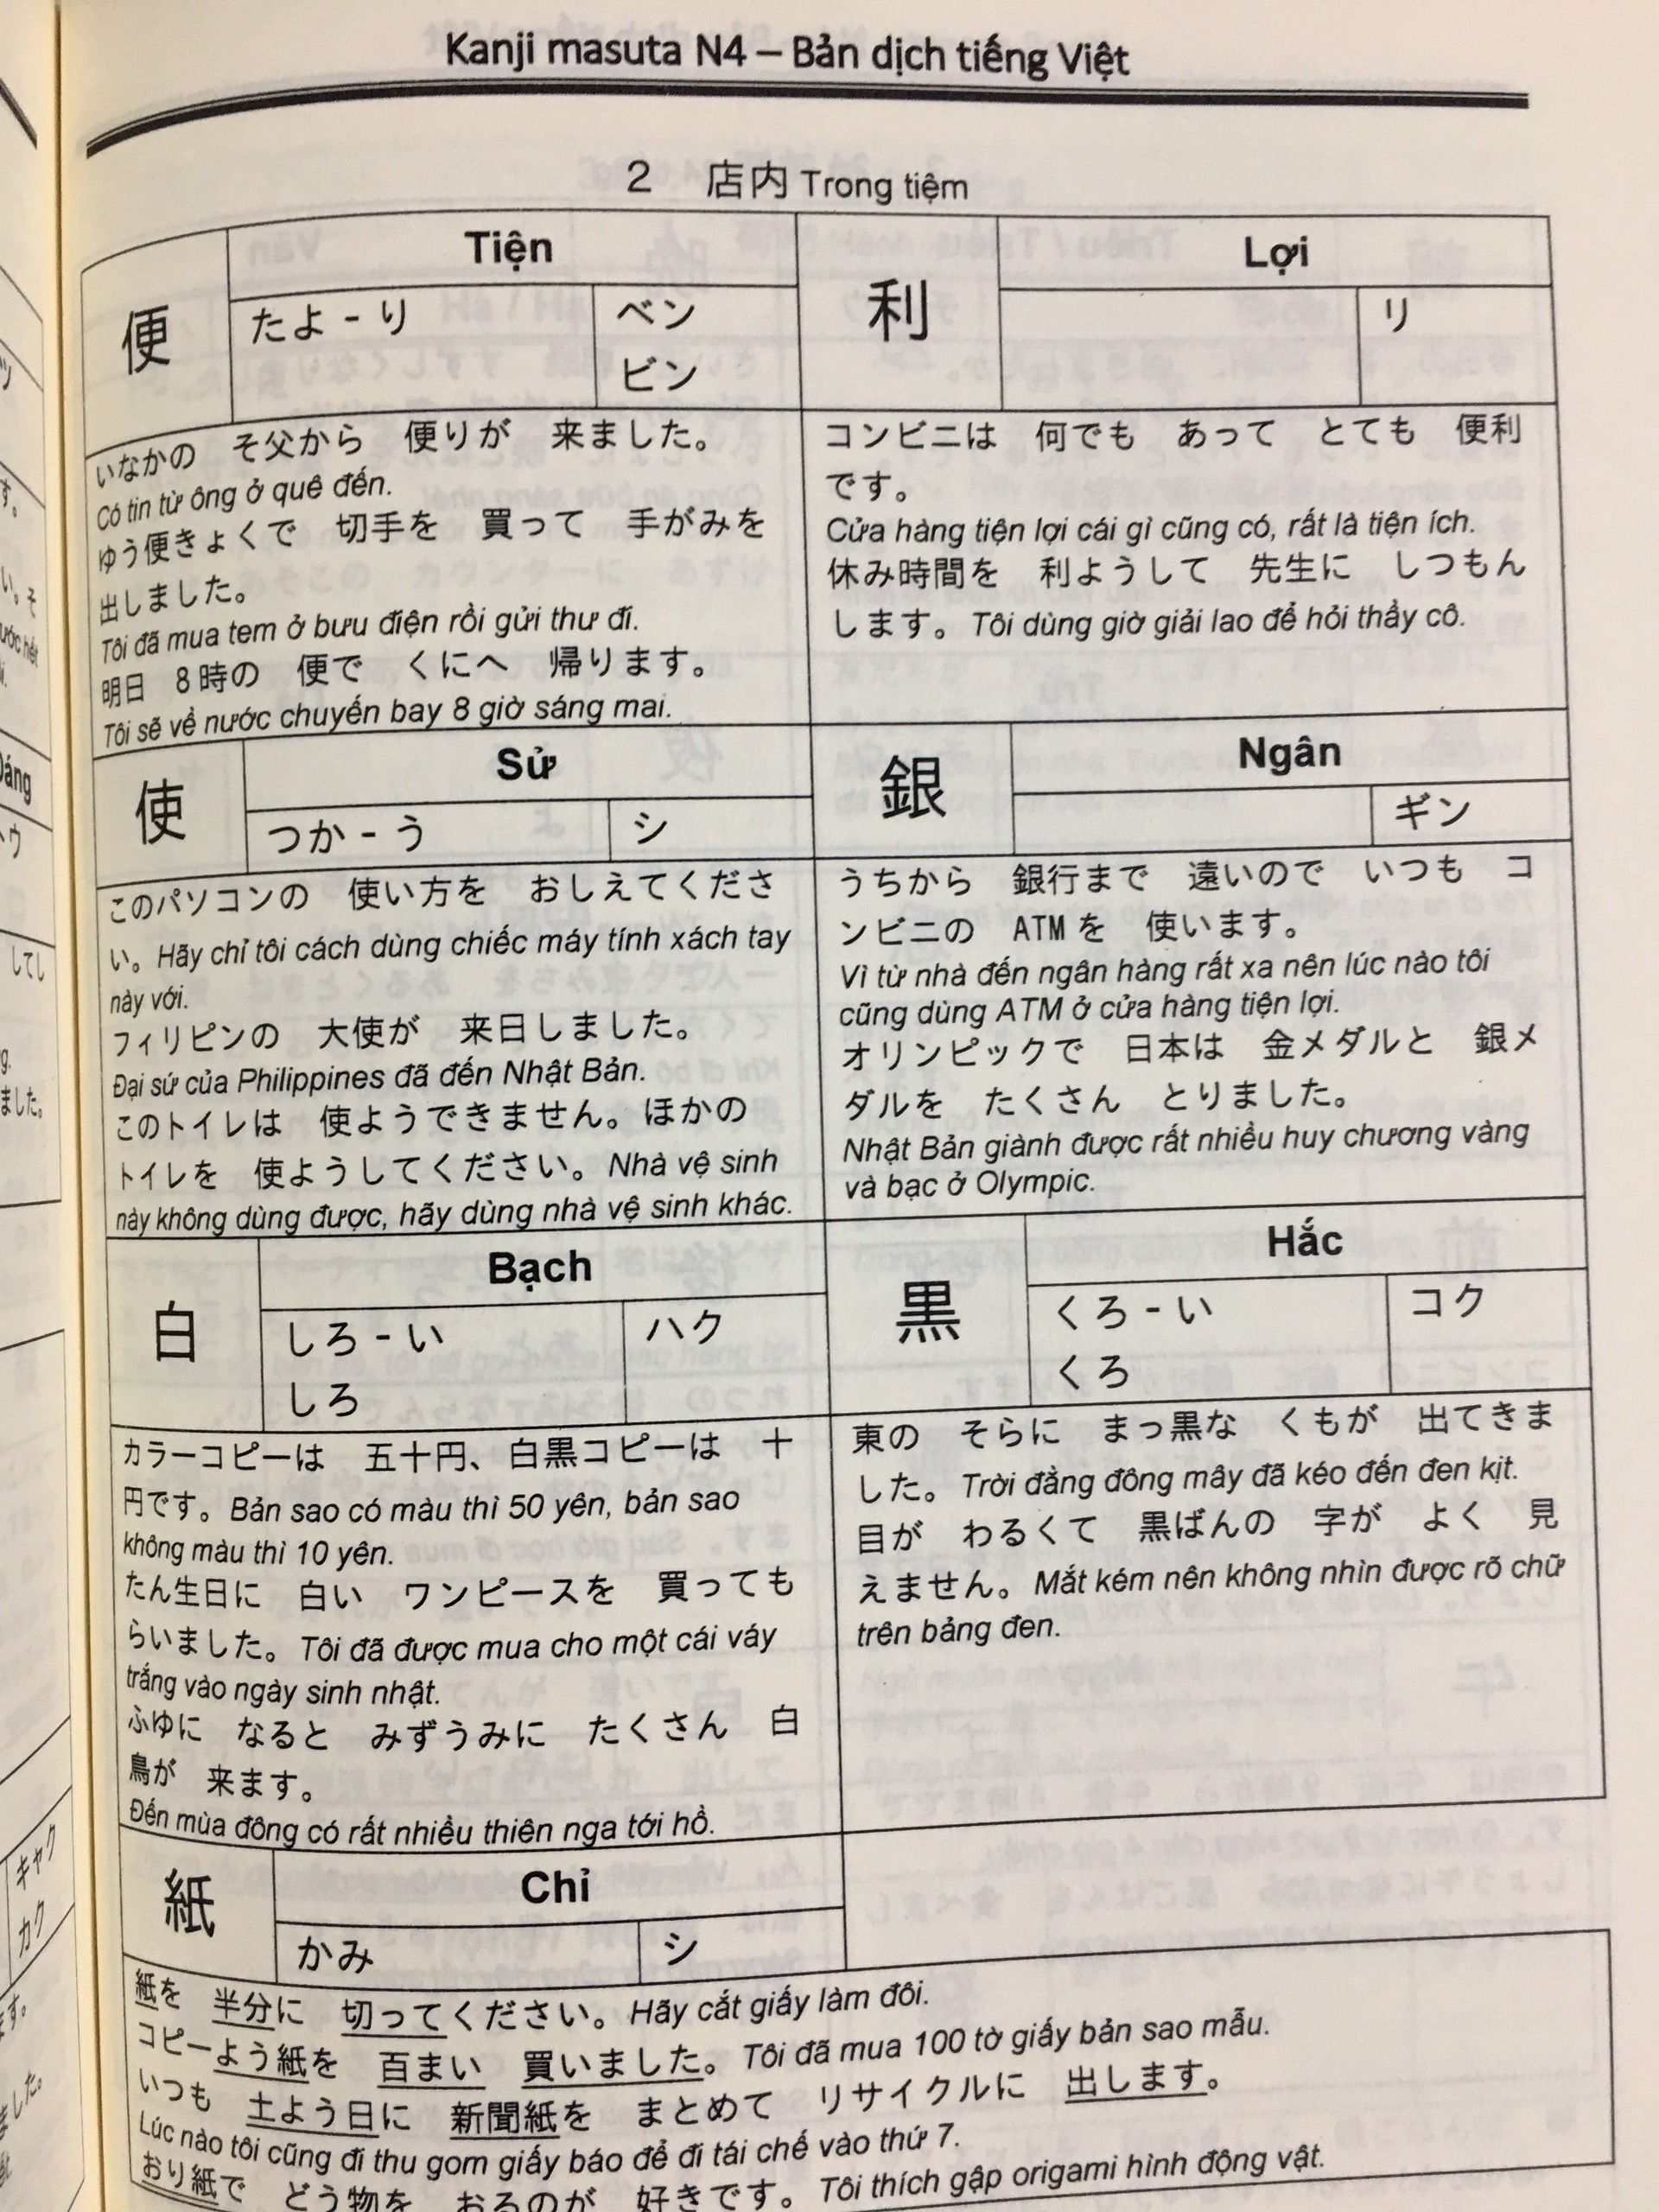 Kanji masuta N4 – Bản dịch tiếng Việt
2 店内 Trong tiệm
便
Tiện
たよ - り
ベン
ビン
いなかの そ父から 便りが 来ました。
Có tin từ ông ở quê đến.
ゆう便きょくで 切手を 買って 手がみを
出しました。
Tôi đã mua tem ở bưu điện rồi gửi thư đi.
明日 8時の 便で くにへ 帰ります。
Tôi sẽ về nước chuyến bay 8 giờ sáng mai.
利
Lợi
リ
コンビニは 何でも あって とても 便利
です。
Cửa hàng tiện lợi cái gì cũng có, rất là tiện ích.
休み時間を 利ようして 先生に しつもん
します。Tôi dùng giờ giải lao để hỏi thầy cô.
使
Sử
つか - う
シ
このパソコンの 使い方を おしえてくださ
い。Hãy chỉ tôi cách dùng chiếc máy tính xách tay
này với.
フィリピンの 大使が 来日しました。
Đại sứ của Philippines đã đến Nhật Bản.
このトイレは 使ようできません。ほかの
トイレを 使ようしてください。Nhà vệ sinh
này không dùng được, hãy dùng nhà vệ sinh khác.
銀
Ngân
ギン
うちから 銀行まで 遠いので いつも コ
ンビニの ATMを 使います。
Vì từ nhà đến ngân hàng rất xa nên lúc nào tôi
cũng dùng ATM ở cửa hàng tiện lợi.
オリンピックで 日本は 金メダルと 銀メ
ダルを たくさん とりました。
Nhật Bản giành được rất nhiều huy chương vàng
và bạc ở Olympic.
白
Bạch
しろ - い
しろ
ハク
カラーコピーは 五十円、白黒コピーは 十
円です。Bản sao có màu thì 50 yên, bản sao
không màu thì 10 yên.
たん生日に 白い ワンピースを 買っても
らいました。Tôi đã được mua cho một cái váy
trắng vào ngày sinh nhật.
ふゆに なると みずうみに たくさん 白
鳥が 来ます。
Đến mùa đông có rất nhiều thiên nga tới hồ.
黒
Hắc
くろ - い
くろ
コク
東の そらに まっ黒な くもが 出てきま
した。Trời đằng đông mây đã kéo đến đen kịt.
目が わるくて 黒ばんの 字が よく 見
えません。Mắt kém nên không nhìn được rõ chữ
trên bảng đen.
紙
Chỉ
かみ
シ
紙を 半分に 切ってください。Hãy cắt giấy làm đôi.
コピーよう紙を 百まい 買いました。Tôi đã mua 100 tờ giấy bản sao mẫu.
いつも 土よう日に 新聞紙を まとめて リサイクルに 出します。
Lúc nào tôi cũng đi thu gom giấy báo để đi tái chế vào thứ 7.
おり紙で どう物を おるのが 好きです。Tôi thích gập origami hình động vật.